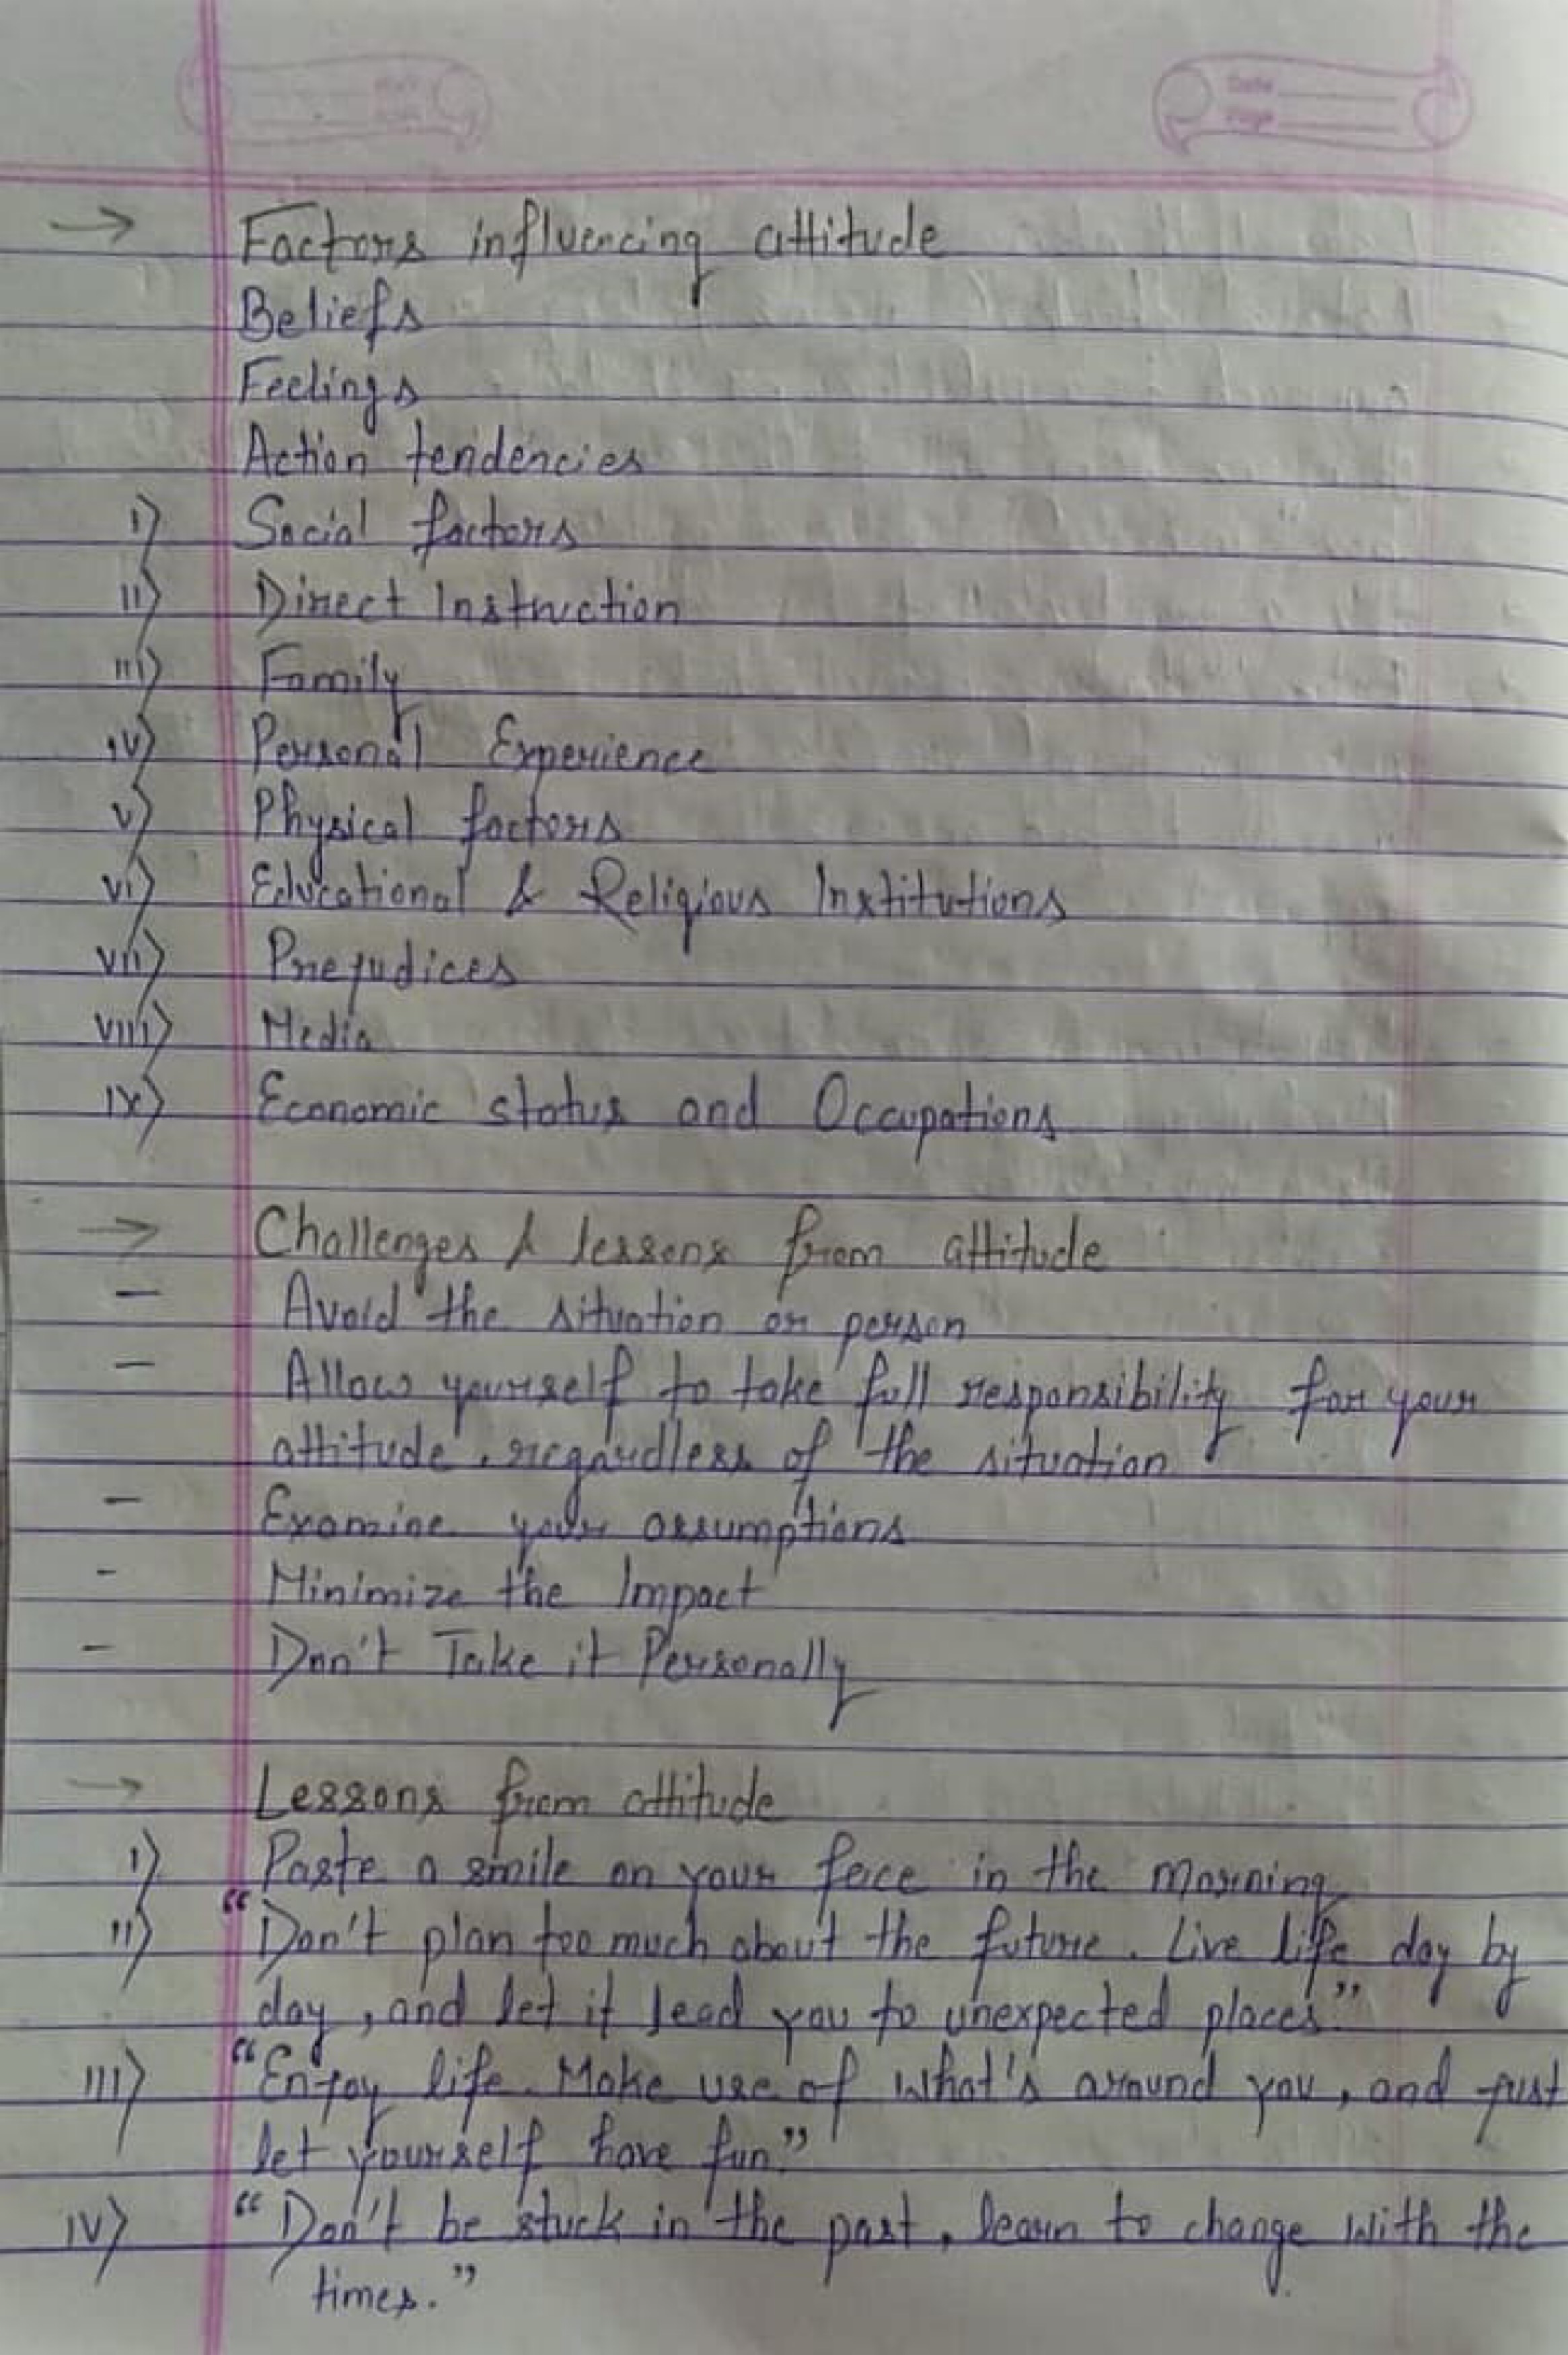 Date
Page
→ Factors influencing attitude
Beliefs
Feelings
Action tendencies
i) Social factors
ii) Direct Instruction
iii) Family
iv) Personal Experience
v) Physical factors
vi) Educational & Religious Institutions
vii) Prejudices
viii) Media
ix) Economic status and Occupations
→ Challenges & lessons from attitude
- Avoid the situation or person
- Allow yourself to take full responsibility for your
attitude, regardless of the situation
- Examine your assumptions
- Minimize the Impact
- Don't Take it Personally
→ Lessons from attitude
i) Paste a smile on your face in the morning
ii) “Don't plan too much about the future. Live life day by
day, and let it lead you to unexpected places.”
iii) “Enjoy life. Make use of what's around you, and just
let yourself have fun.”
iv) “Don't be stuck in the past, learn to change with the
times.”